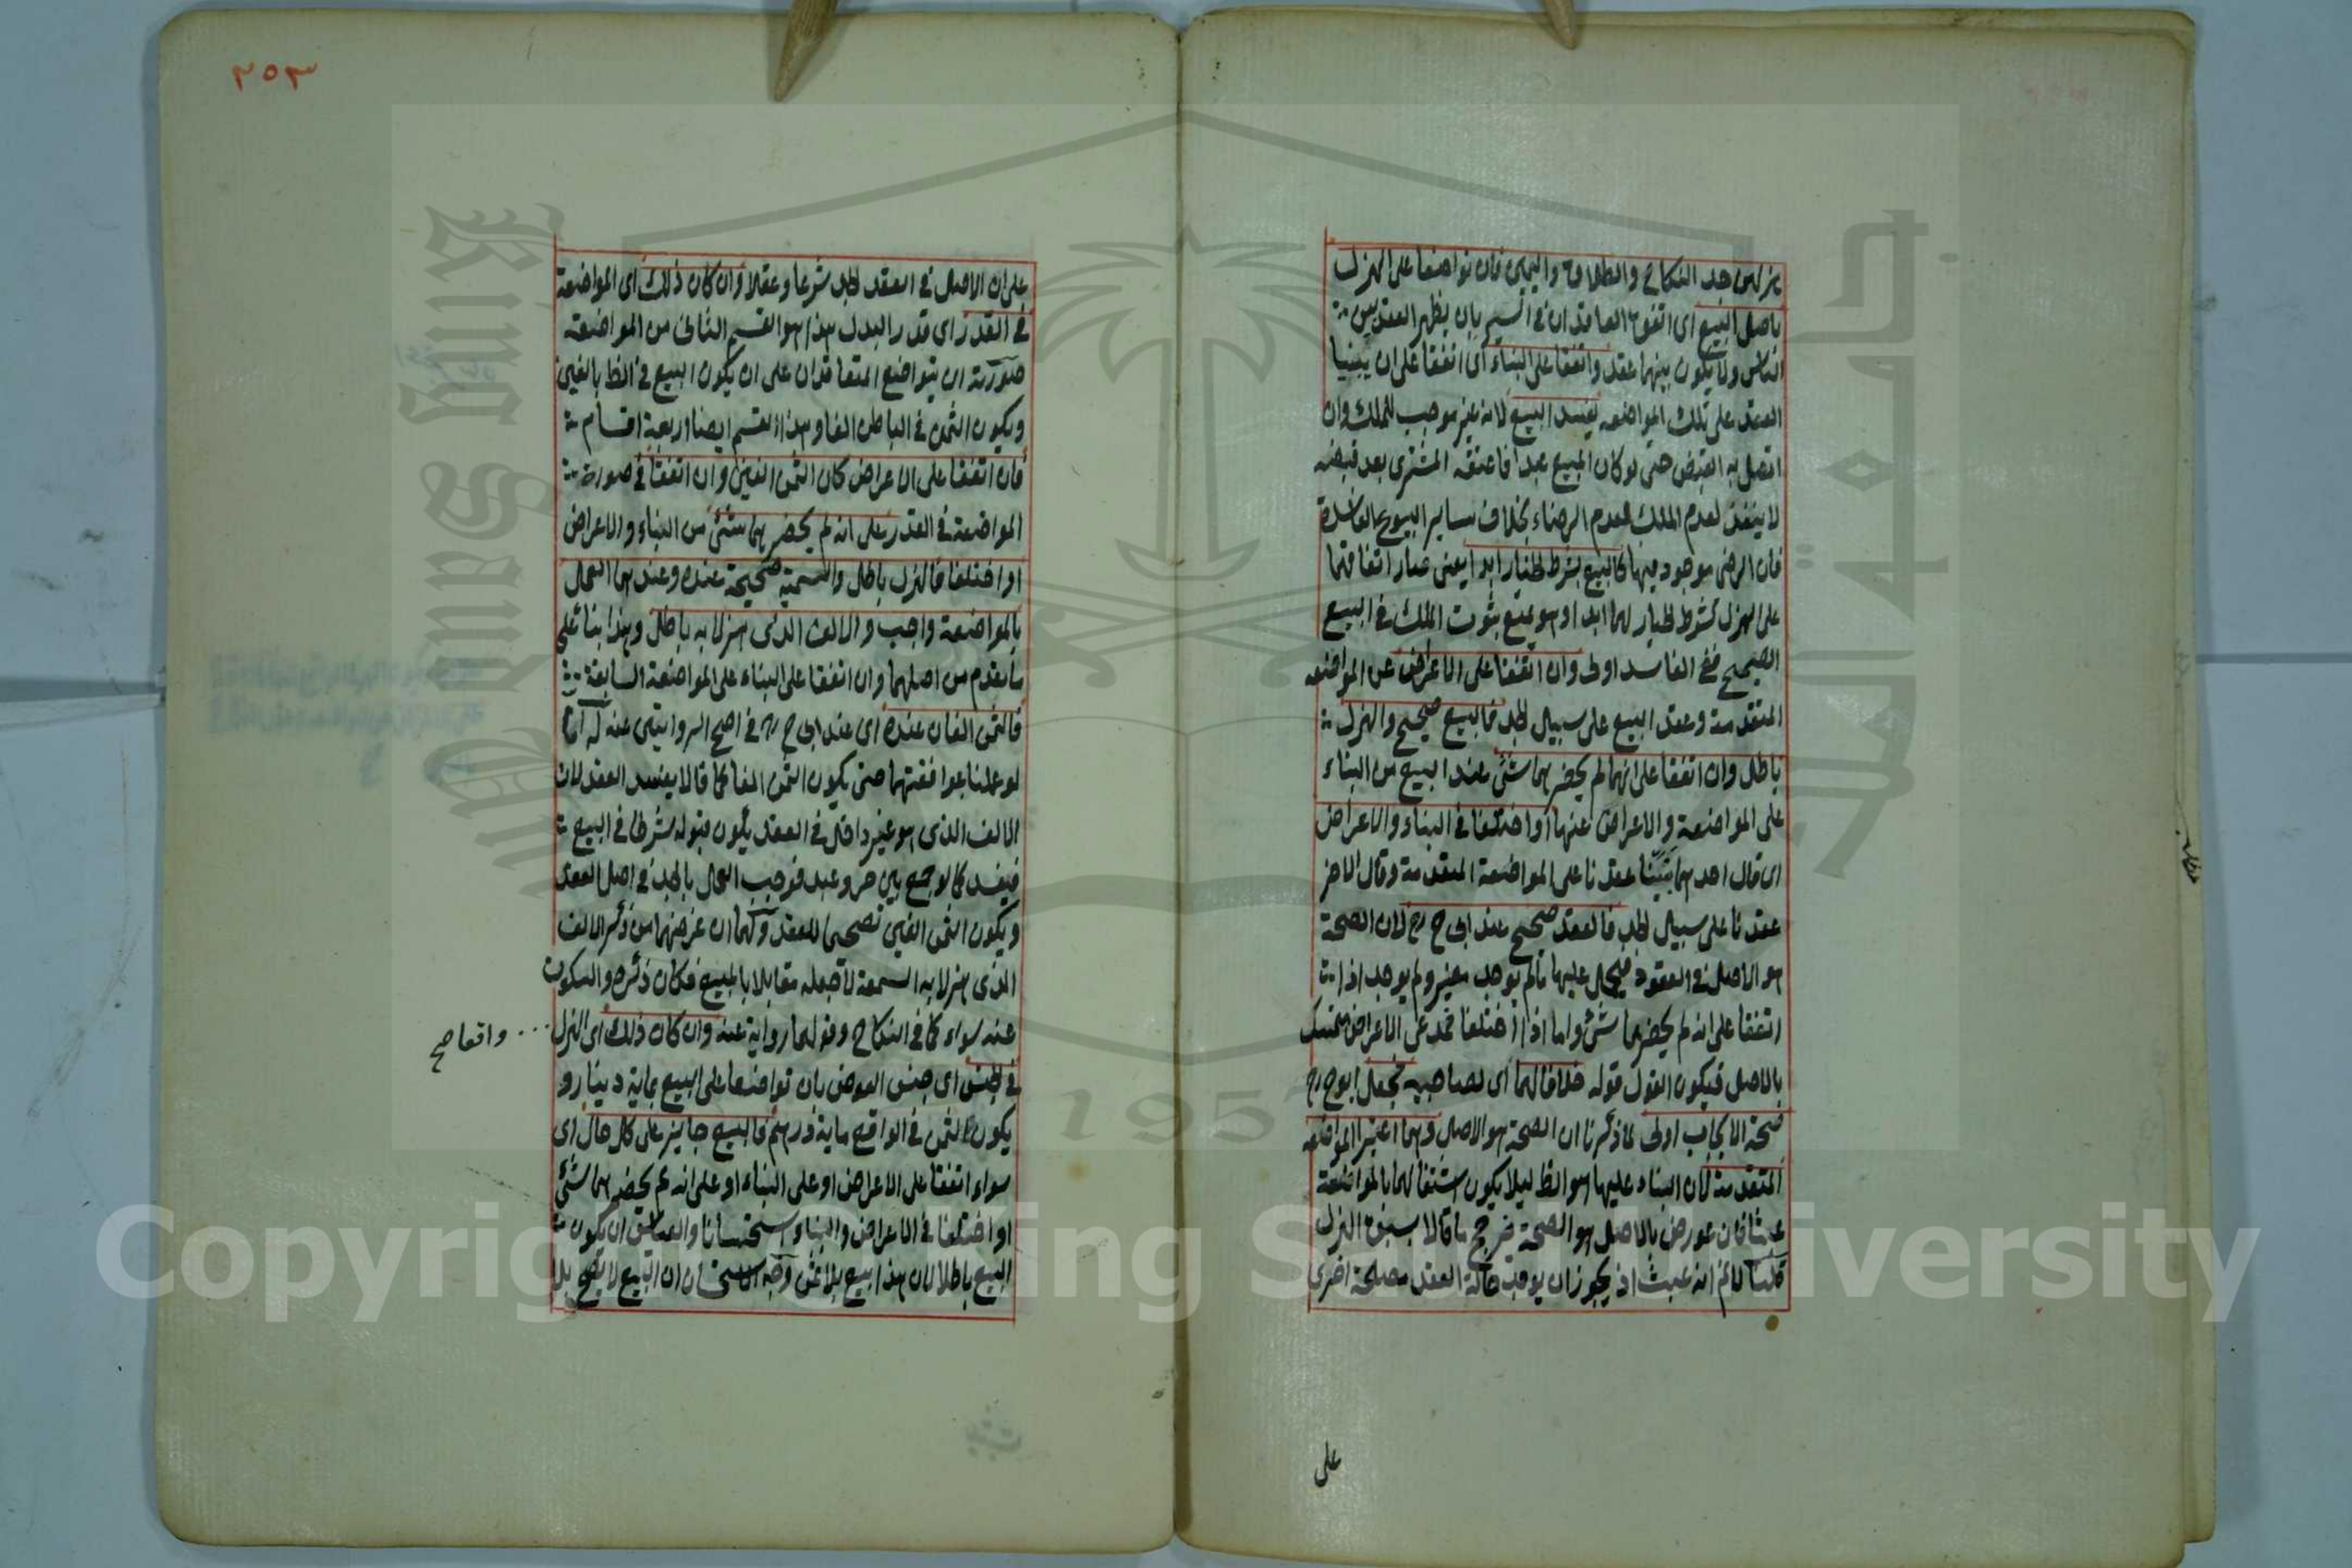 هزلهن جد النكاح والطلاق واليمين فان تواضعا على الهزل
باصل البيع اى اتفق العاقدان فى السر بان يظهر العقد بين
الناس ولا يكون بينهما عقد واتفقا على البناء اى اتفقا على ان يبنيا
العقد على تلك المواضعه يفسد البيع لانه غير موجب للملك وان
اتصل به القبض حتى لو كان المبيع عبدا فاعتقه المشترى بعد قبضه
لا ينفذ لعدم الملك لعدم الرضاء بخلاف ساير البيوع الفاسدة
فان الرضى موجود فيها كالبيع بشرط الخيار ابدا يعنى صار اتفاقهما
على الهزل كشرط الخيار لهما ابدا وهو يمنع ثبوت الملك فى البيع
الصحيح ففى الفاسد اولى وان اتفقا على الاعراض عن المواضعه
المتقدمة وعقد البيع على سبيل الجد فالبيع صحيح والهزل
باطل وان اتفقا على انهما لم يحضرهما شئ عند البيع من البناء
على المواضعة والاعراض عنها او اختلفا فى البناء والاعراض
اى قال احدهما بنينا عقدنا على المواضعة المتقدمة وقال الاخر
عقدنا على سبيل الجد فالعقد صحيح عند ابى ح رح لان الصحة
هو الاصل فى العقود فيحمل عليها ما لم يوجد مغير ولم يوجد اذا
اتفقا على انه لم يحضرهما شئ واما اذا اختلفا فمدعى الاعراض متمسك
بالاصل فيكون القول قوله خلافا لهما اى لصاحبيه فجعل ابو ح رح
صحة الايجاب اولى لما ذكرنا ان الصحة هو الاصل وهما اعتبرا المواضعه
المتقدمة لان البناء عليها هو الظ ليلا يكون اشتغالهما بالمواضعة
عبثا فان عورض بالاصل هو الصحة يرجح ما قالا بسبق الهزل
قلنا لا نم انه عبث اذ يجوز ان يوجد حالة العقد مصلحة اخرى
على
٢٥٣
على ان الاصل فى العقد الجد شرعا وعقلا وان كان ذلك اى المواضعة
فى القدر اى قدر البدل هذا هو القسم الثانى من المواضعة
صورته ان يتواضع المتعاقدان على ان يكون البيع فى الظ بالفين
ويكون الثمن فى الباطن الفا وهذا القسم ايضا اربعة اقسام
فان اتفقا على الاعراض كان الثمن الفين وان اتفقا فى صورة
المواضعة فى القدر على انه لم يحضرهما شئ من البناء والاعراض
او اختلفا فالهزل باطل والتسمية صحيحة عنده وعندهما العمل
بالمواضعة واجب والالف الذى هزلا به باطل وهذا بناء على
ما تقدم من اصلهما وان اتفقا على البناء على المواضعة السابقة
فالثمن الفان عنده اى عند ابى ح رح فى اصح الروايتين عنه له انا
لو عملنا بموافقتهما حتى يكون الثمن الفا كما قالا يفسد العقد لان
الالف الذى هو غير داخل فى العقد يكون قبوله شرطا فى البيع
فيفسد كما لو جمع بين حر وعبد فوجب العمل بالجد فى اصل العقد
ويكون الثمن الفين تصحيحا للعقد ولهما ان غرضهما من ذكر الالف
الذى هزلا به السمعة لا جعله مقابلا بالمبيع فكان ذكره والسكوت
عنه سواء كما فى النكاح وقولهما رواية عنه وان كان ذلك اى الهزل
واقعا صح
فى الجنس اى جنس العوض بان تواضعا على البيع بماية دينار و
يكون الثمن فى الواقع ماية درهم فالبيع جايز على كل حال اى
سواء اتفقا على الاعراض او على البناء او على انه لم يحضرهما شئ
او اختلفا فى الاعراض والبناء استحسانا والقياس ان يكون
البيع باطلا لان هذا بيع بلا ثمن وجه الاستحسان ان البيع لا يصح بلا
Copyright © King Saud University
King Saud University
1957